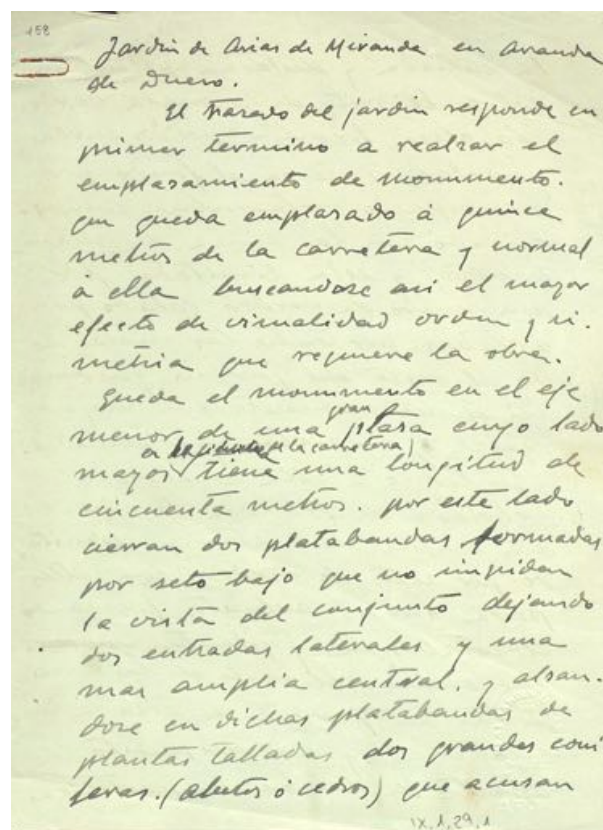 158
Jardin de Arias de Miranda en Aranda
de Duero.
El trazado del jardin responde en
primer termino a realzar el
emplazamiento de monumento.
que queda emplazado á quince
metros de la carretera y normal
á ella buscandose asi el mayor
efecto de visualidad orden y si.
metria que requiere la obra.
Queda el monumento en el eje
menor de una gran plaza cuyo lado
(de la carretera)
mayor tiene una longitud de
cincuenta metros. por este lado
cierran dos platabandas formadas
por seto bajo que no impidan
la vista del conjunto dejando
dos entradas laterales y una
mas amplia central. y alzan.
dose en dichas platabandas de
plantas talladas dos grandes coni
feras. (abetos ó cedros) que acusan
IX.1.29.1